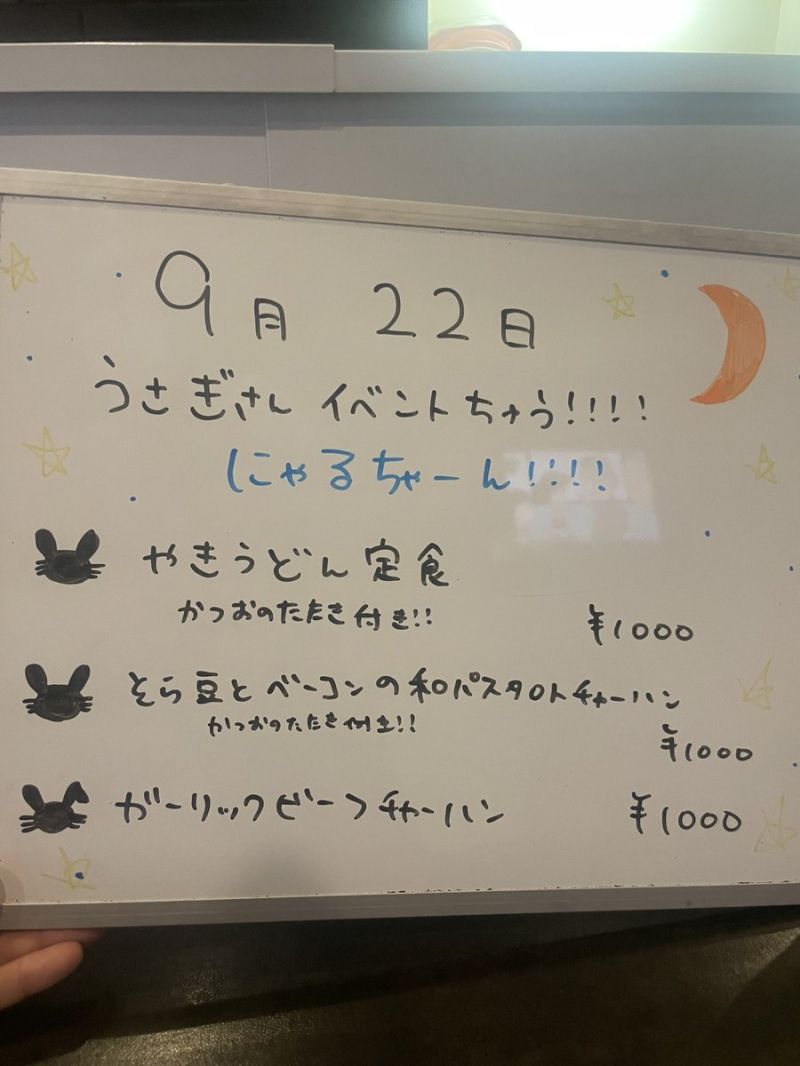 9月 22日
うさぎさん イベントちゅう!!!!
にゃるちゃーん!!!!
やきうどん定食
かつおのたたき付き!!
¥1000
そら豆とベーコンの和パスタorチャーハン
かつおのたたき付き!!
¥1000
ガーリックビーフチャーハン ¥1000